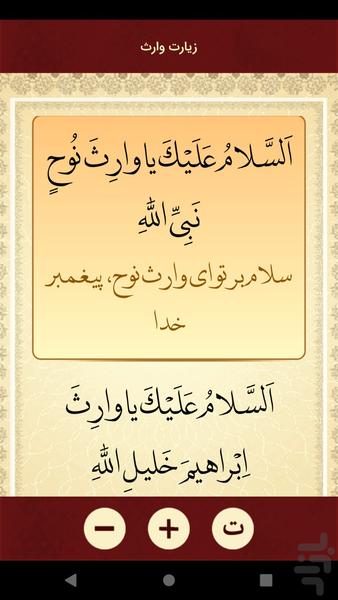 زیارت وارث
اَلسَّلامُ عَلَيْكَ يا وارِثَ نُوحٍ
نَبِىِّ اللهِ
سلام بر تو ای وارث نوح، پیغمبر
خدا
اَلسَّلامُ عَلَيْكَ يا وارِثَ
اِبْراهيمَ خَليلِ اللهِ
− + ت
بازار